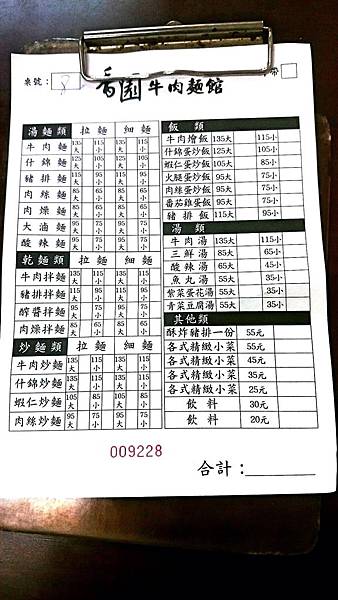 桌號： 8 香園牛肉麵館 帶
湯麵類 拉麵 細麵
牛肉麵 135大 115小 135大 115小
什錦麵 125大 105小 125大 105小
豬排麵 115大 95小 115大 95小
肉絲麵 85大 65小 85大 65小
肉燥麵 85大 65小 85大 65小
大滷麵 95大 75小 95大 75小
酸辣麵 95大 75小 95大 75小
乾麵類 拉麵 細麵
牛肉拌麵 135大 115小 135大 115小
豬排拌麵 115大 95小 115大 95小
醡醬拌麵 95大 75小 95大 75小
肉燥拌麵 85大 65小 85大 65小
炒麵類 拉麵 細麵
牛肉炒麵 135大 115小 135大 115小
什錦炒麵 135大 115小 135大 115小
蝦仁炒麵 105大 85小 105大 85小
肉絲炒麵 95大 75小 95大 75小
飯類
牛肉燴飯 135大 115小
什錦蛋炒飯 125大 105小
蝦仁蛋炒飯 105大 85小
火腿蛋炒飯 95大 75小
肉絲蛋炒飯 95大 75小
番茄雞蛋飯 95大 75小
豬排飯 115大 95小
湯類
牛肉湯 135大 115小
三鮮湯 85大 65小
酸辣湯 65大 45小
魚丸湯 55大 35小
紫菜蛋花湯 55大 35小
青菜豆腐湯 55大 35小
其他類
酥炸豬排一份 55元
各式精緻小菜 55元
各式精緻小菜 45元
各式精緻小菜 35元
各式精緻小菜 25元
飲料 30元
飲料 20元
009228
合計：